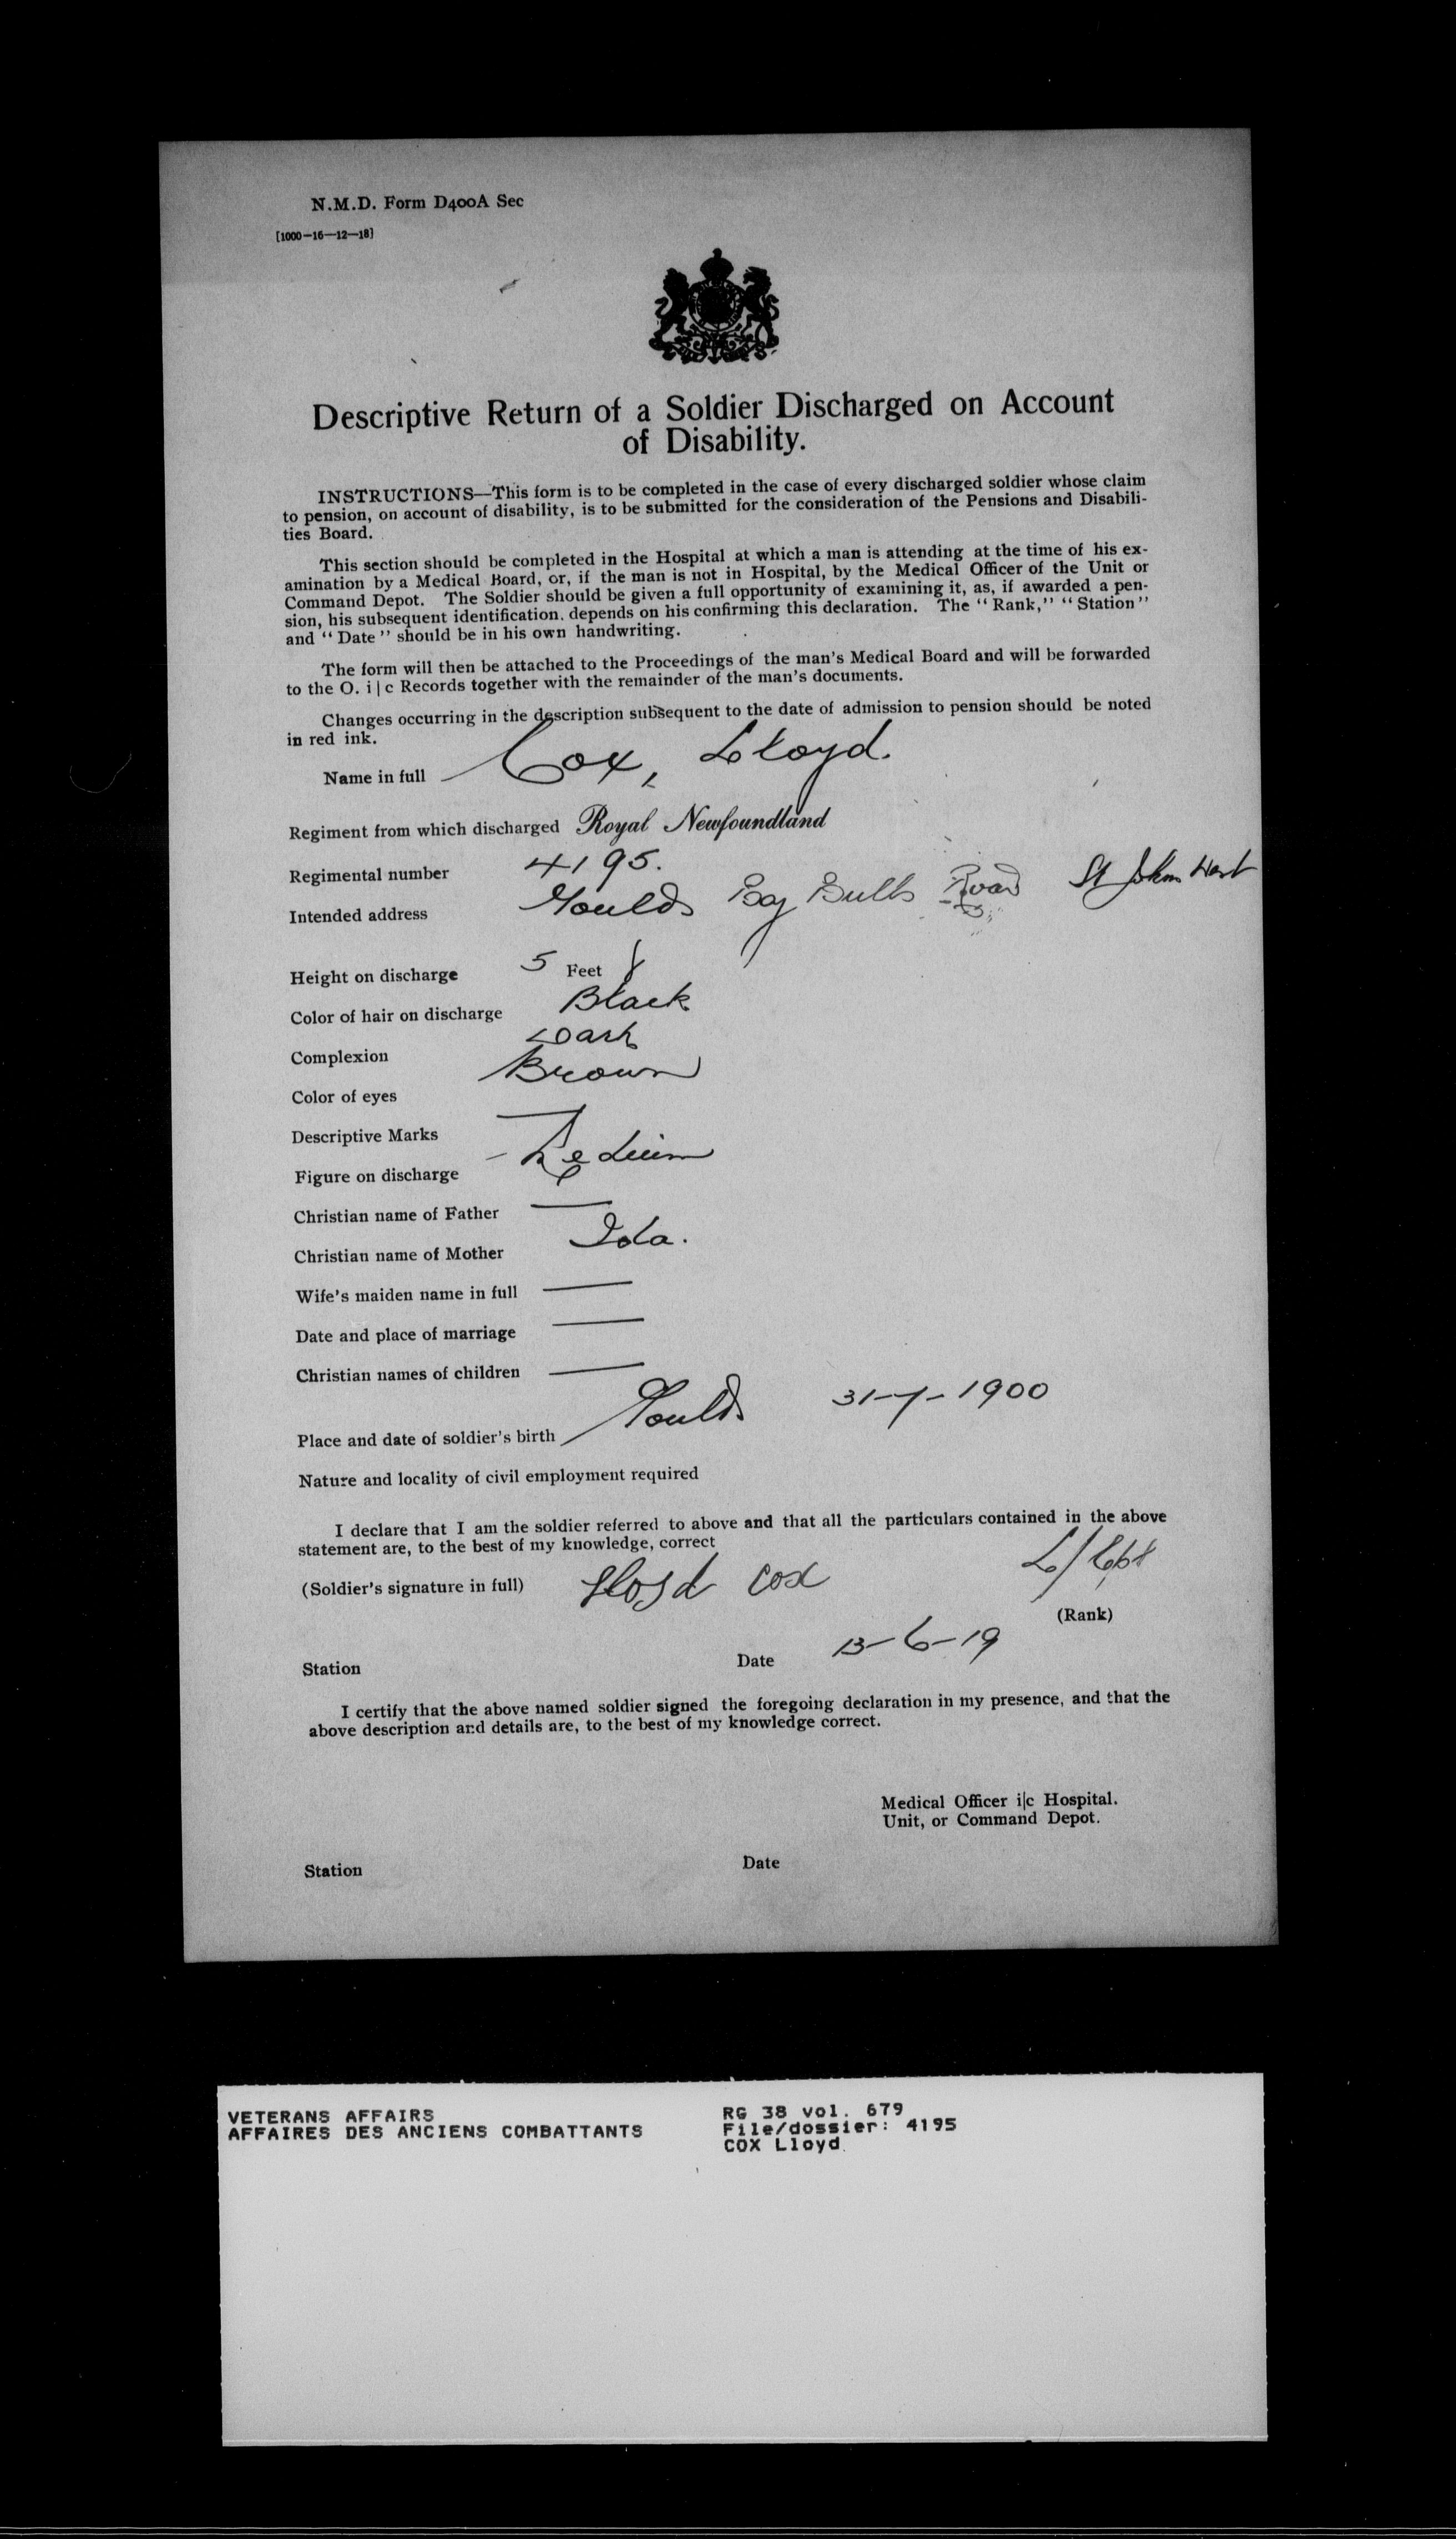 N.M.D. Form D400A Sec
[1000—16—12—18]
Descriptive Return of a Soldier Discharged on Account
of Disability.
INSTRUCTIONS—This form is to be completed in the case of every discharged soldier whose claim
to pension, on account of disability, is to be submitted for the consideration of the Pensions and Disabili-
ties Board.
This section should be completed in the Hospital at which a man is attending at the time of his ex-
amination by a Medical Board, or, if the man is not in Hospital, by the Medical Officer of the Unit or
Command Depot. The Soldier should be given a full opportunity of examining it, as, if awarded a pen-
sion, his subsequent identification. depends on his confirming this declaration. The "Rank," "Station"
and "Date" should be in his own handwriting.
The form will then be attached to the Proceedings of the man's Medical Board and will be forwarded
to the O. i|c Records together with the remainder of the man's documents.
Changes occurring in the description subsequent to the date of admission to pension should be noted
in red ink.
Name in full Cox, Lloyd.
Regiment from which discharged Royal Newfoundland
Regimental number 4195.
Intended address Goulds Bay Bulls Road St John West
Height on discharge 5 Feet
Color of hair on discharge Black
Complexion Dark
Color of eyes Brown
Descriptive Marks —
Figure on discharge Medium
Christian name of Father —
Christian name of Mother Ida.
Wife's maiden name in full —
Date and place of marriage —
Christian names of children —
Place and date of soldier's birth Goulds 31-7-1900
Nature and locality of civil employment required
I declare that I am the soldier referred to above and that all the particulars contained in the above
statement are, to the best of my knowledge, correct
(Soldier's signature in full) Lloyd Cox L/Cpl
(Rank)
Station Date 13-6-19
I certify that the above named soldier signed the foregoing declaration in my presence, and that the
above description and details are, to the best of my knowledge correct.
Medical Officer i|c Hospital.
Unit, or Command Depot.
Station Date
VETERANS AFFAIRS RG 38 vol. 679
AFFAIRES DES ANCIENS COMBATTANTS File/dossier: 4195
COX Lloyd